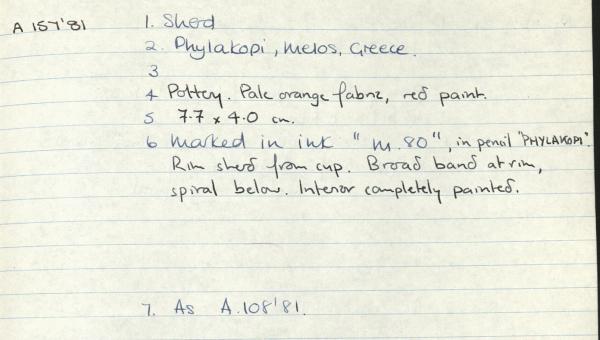 A 157'81
1. Sherd
2. Phylakopi, Melos, Greece.
3
4 Pottery. Pale orange fabric, red paint.
5 7.7 x 4.0 cm.
6 Marked in ink "M.80", in pencil "PHYLAKOPI".
Rim sherd from cup. Broad band at rim,
spiral below. Interior completely painted.
7. As A.108'81.